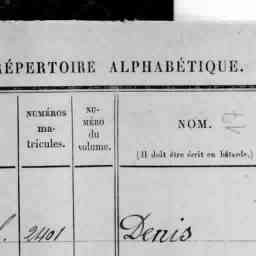 RÉPERTOIRE ALPHABÉTIQUE.
NUMÉROS
ma-
tricules.
NU-
MÉRO
du
volume.
NOM.
17
(Il doit être écrit en bâtarde.)
2401
Denis